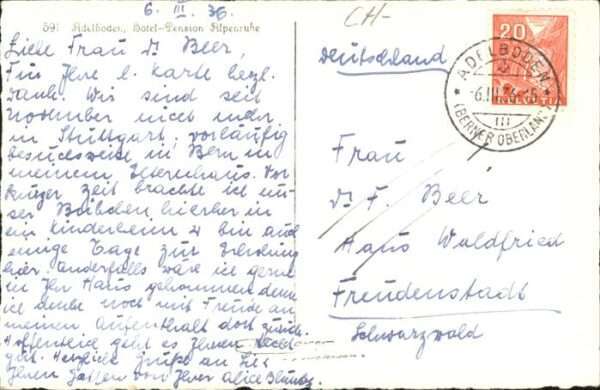 6. III. 36.
CH-
591 Adelboden, Hotel-Pension Alpenruhe
Liebe Frau Dr Beer,
Für Ihre l. Karte herzl.
Dank. Wir sind seit
November nicht mehr
in Stuttgart, vorläufig
besuchsweise in Bern in
meinem Elternhaus. Vor
kurzer Zeit brachte ich un-
ser Bübchen hierher in
ein Kinderheim & bin auch
einige Tage zur Erholung
hier. Andernfalls wäre ich gerne
in Ihr Haus gekommen denn
ich denke noch mit Freude an
meinen Aufenthalt dort zurück.
Hoffentlich geht es Ihnen recht
gut. Herzliche Grüße an Sie
Ihren Gatten von Ihrer Alice
Deutschland
Frau
Dr F. Beer
Haus Waldfried
Freudenstadt
Schwarzwald
20
HELVETIA
ADELBODEN
-6.III.36
III
(BERNER OBERLAND)